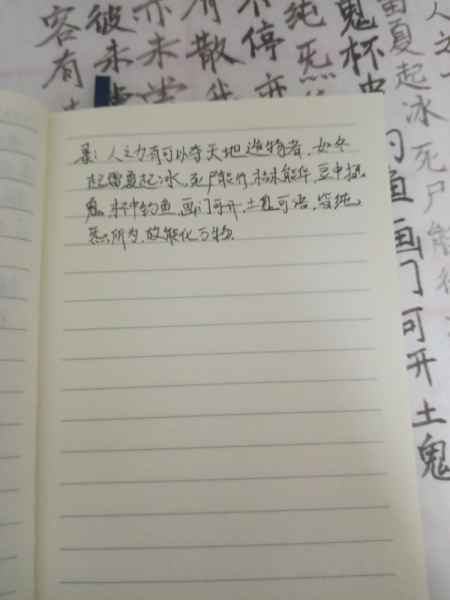 人之力有可以夺天地造物者，如冬
起雷夏起冰，死尸能行，枯木能华，豆中摄
鬼，杯中钓鱼，画门可开，土鬼可语，皆纯
炁所为，故能化万物.
人之
雷夏起冰死尸能
鬼杯中
钓鱼画门可开土鬼
纯炁
不停亦
有散
亦未尝
彼未
容有